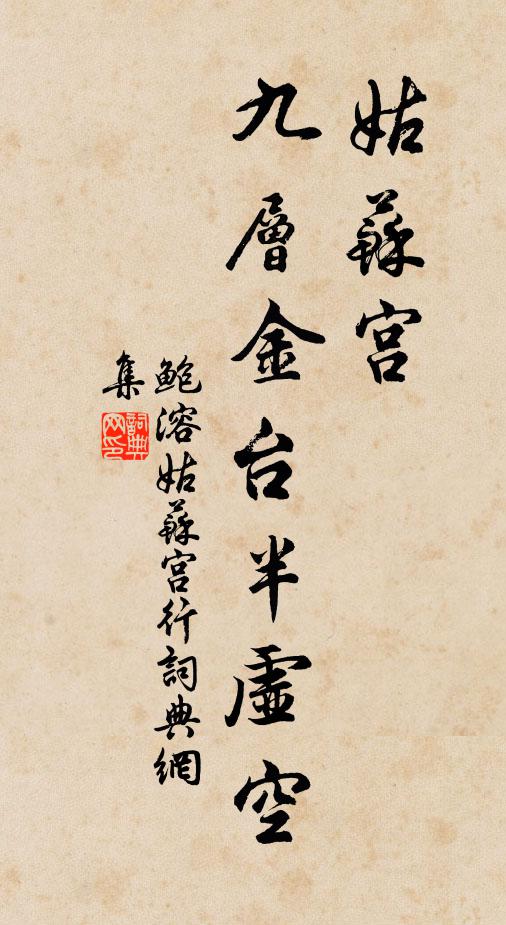 姑蘇宮
九層金台半虛空
鮑溶姑蘇宮行詞典網
集
詞典
网印